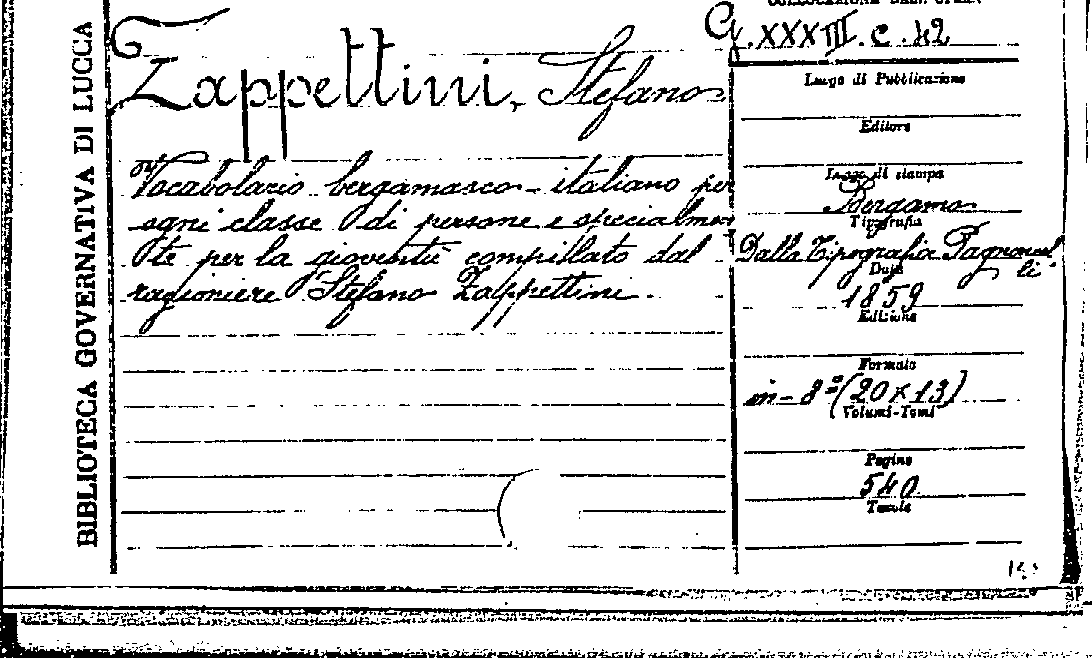 BIBLIOTECA GOVERNATIVA DI LUCCA
Zappettini, Stefano
Vocabolario bergamasco-italiano per
ogni classe di persone e specialmen
te per la gioventù compillato dal
ragioniere Stefano Zappettini.
G. XXXIII. c. 42
Luogo di Pubblicazione
Editore
Luogo di stampa
Bergamo
Tipografia
Dalla Tipografia Pagnoncel
li
Data
1859
Edizione
Formato
in-8º (20 x 13)
Volumi-Tomi
Pagine
540
Tavole